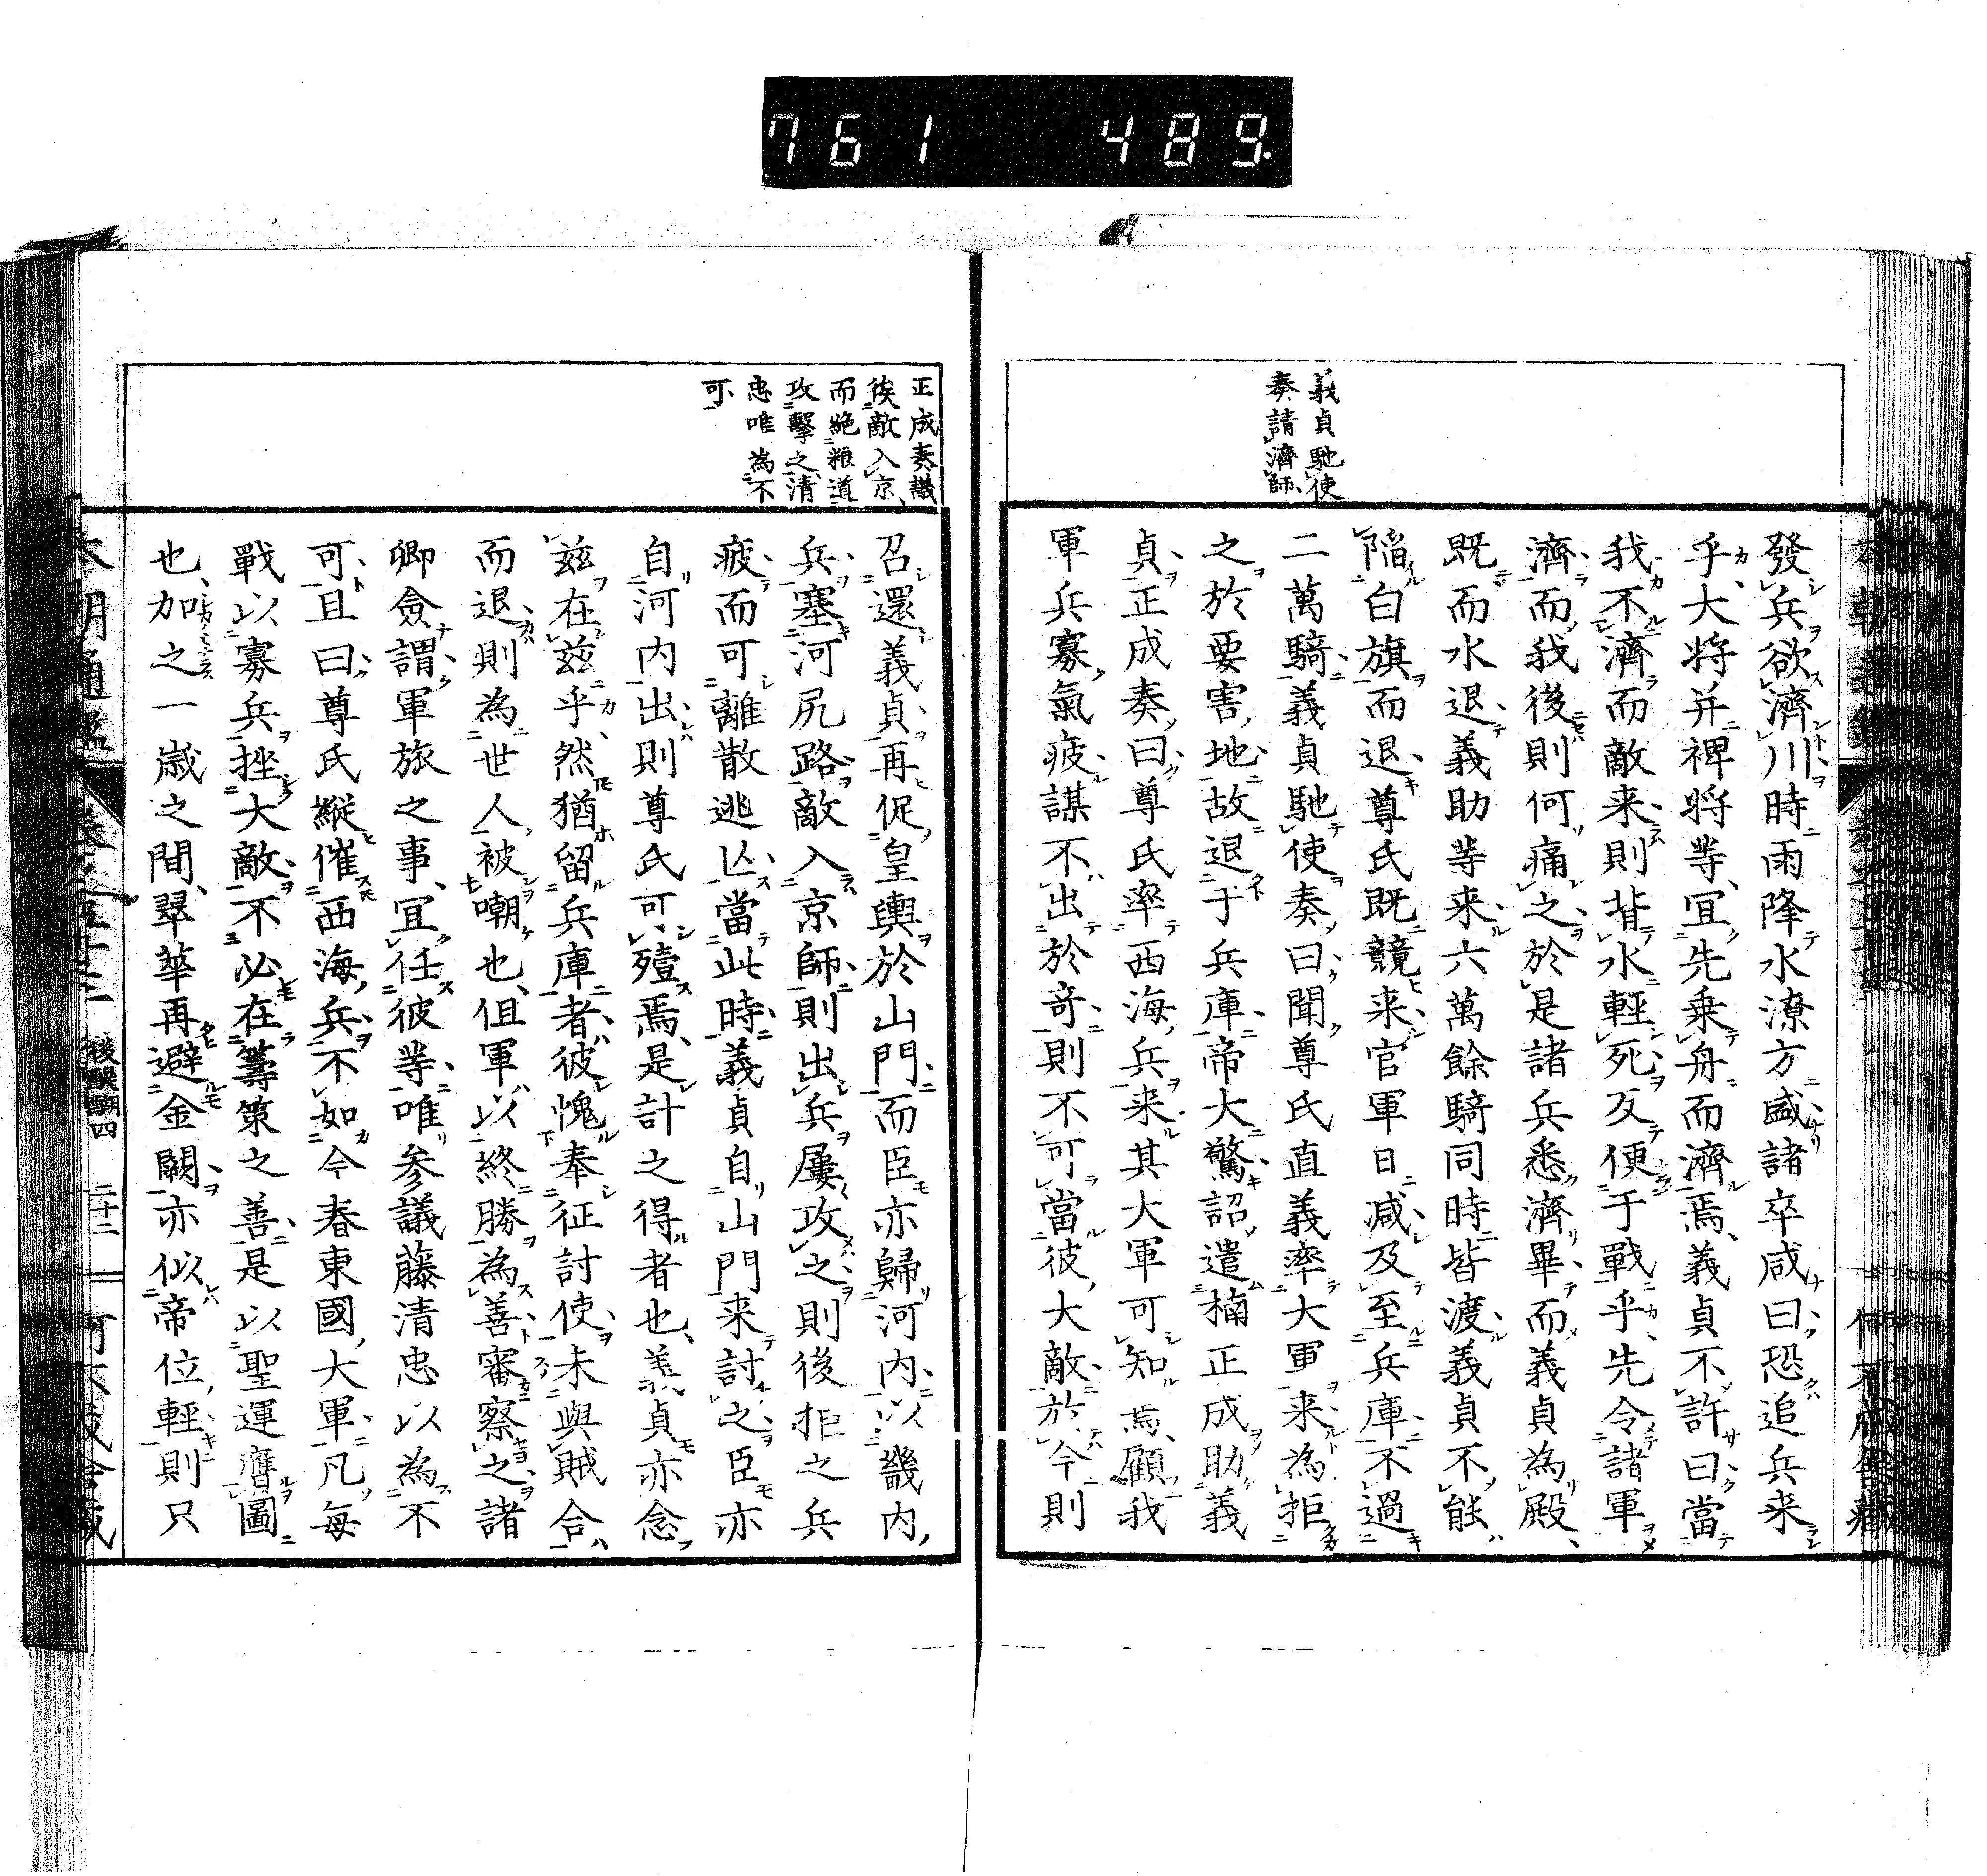 761 489
義貞馳使
奏請濟師
發兵欲濟川時雨降水潦方盛諸卒咸曰恐追兵来
乎大将并裨将等宜先乗舟而濟焉義貞不許曰當
我不濟而敵来則背水輕死反便于戰乎先令諸軍
濟而我後則何痛之於是諸兵悉濟畢而義貞為殿
既而水退義助等来六萬餘騎同時皆渡義貞不能
陥白旗而退尊氏既競来官軍日减及至兵庫不過
二萬騎義貞馳使奏曰聞尊氏直義率大軍来為拒
之於要害地故退于兵庫帝大驚詔遣楠正成助義
貞正成奏曰尊氏率西海兵来其大軍可知焉顧我
軍兵寡氣疲謀不出於奇則不可當彼大敵於今則
正成奏議
俟敵入京
而絶粮道
攻擊之清
忠唯為不
可
召還義貞再促皇輿於山門而臣亦歸河内以畿内
兵塞河尻路敵入京師則出兵屢攻之則後拒之兵
疲而可離散逃亾當此時義貞自山門来討之臣亦
自河内出則尊氏可殪焉是計之得者也義貞亦念
兹在兹乎然猶留兵庫者彼愧奉征討使未與賊合
而退則為世人被嘲也但軍以終勝為善審察之諸
卿僉謂軍旅之事宜任彼等唯参議藤清忠以為不
可且曰尊氏縦催西海兵不如今春東國大軍凡毎
戰以寡兵挫大敵不必在籌策之善是以聖運膺圖
也加之一歳之間翠華再避金闕亦似帝位輕則只
本朝通鑑
後醍醐四
二十二